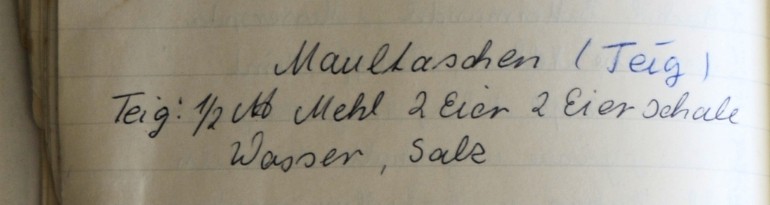 Maultaschen (Teig)
Teig: 1/2 ℔ Mehl 2 Eier 2 Eierschale
Wasser, Salz